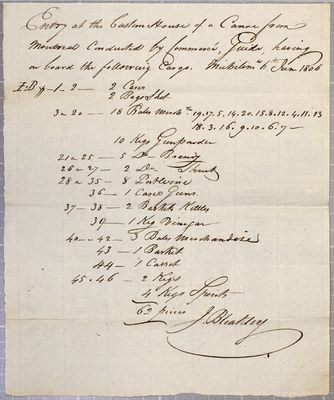 Entry at the Custom House of a Canoe from
Montreal Conducted by Commerce, Guide, having
on board the following Cargo. Michilimk 6th June 1806
1 - 2 - 2 Cases
2 Bags Shot
3 a 20 - 18 Bales Merchze 19.17.5.14.20.15.8.12.4.11.13
18.3.16.9.10.6.7 -
10 Kegs Gunpowder
21 a 25 - 5 Do Brandy
26 a 27 - 2 Do
28 a 35 - 8 Port Wine
36 - 1 Case Guns
37 - 38 - 2 Baskets Kettles
39 - 1 Keg Vinegar
40 - 42 - 3 Bales Merchandize
43 - 1 Basket
44 - 1 Casset
45.46 - 2 Kegs
4 Kegs Spirits
62 pieces
J. Bleakley